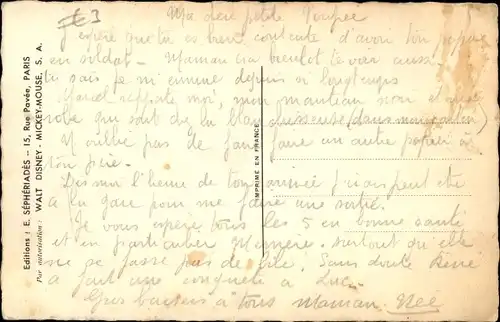 £3
Ma chère petite Poupée
J'espère que tu es bien contente d'avoir ton
en soldat. Maman ira bientôt te voir aussi.
tu sais je m'ennuie depuis si longtemps
Marcel rapporte moi, mon manteau noir et une
robe qui sont de la
N'oublie pas de faire faire un autre
ton père.
Dis moi l'heure de ton arrivée j'irais peut être
à la gare pour me faire une sortie.
Je vous espère tous les 5 en bonne santé
et en particulier Mémère. surtout qu'elle
ne se fasse pas de bile. Sans doute René
a fait une conquête à Luc.
Gros baisers à tous Maman
Editions : E. SÉPHÉRIADÈS — 15, Rue Pavée, PARIS
Par autorisation : WALT DISNEY - MICKEY-MOUSE, S. A.
IMPRIMÉ EN FRANCE